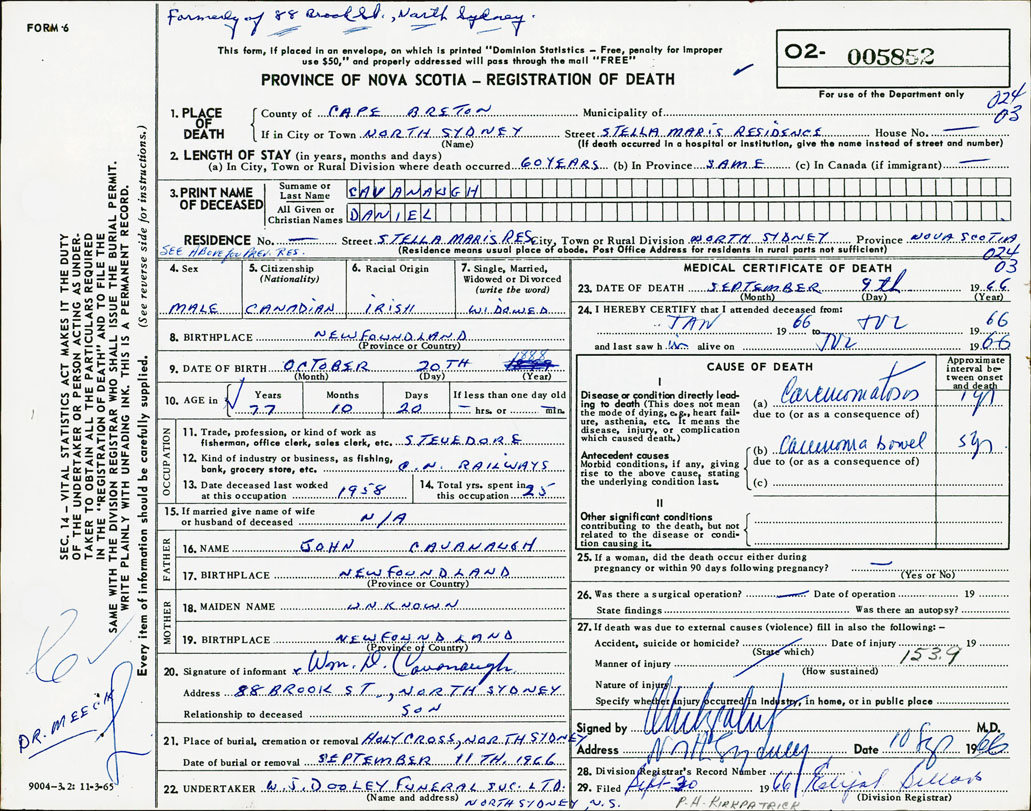 Formerly of 88 Brook St., North Sydney.
FORM 6
This form, if placed in an envelope, on which is printed "Dominion Statistics – Free, penalty for improper
use $50," and properly addressed will pass through the mail "FREE"
PROVINCE OF NOVA SCOTIA – REGISTRATION OF DEATH
O2- 005852
For use of the Department only
024
03
1. PLACE OF DEATH County of CAPE BRETON Municipality of
If in City or Town NORTH SYDNEY Street STELLA MARIS RESIDENCE House No. —
(Name) (If death occurred in a hospital or institution, give the name instead of street and number)
2. LENGTH OF STAY (in years, months and days)
(a) In City, Town or Rural Division where death occurred 60 YEARS (b) In Province SAME (c) In Canada (if immigrant) —
3. PRINT NAME OF DECEASED Surname or Last Name CAVANAUGH
All Given or Christian Names DANIEL
RESIDENCE No. — Street STELLA MARIS RES. City, Town or Rural Division NORTH SYDNEY Province NOVA SCOTIA
SEE ABOVE for PREV. RES. (Residence means usual place of abode. Post Office Address for residents in rural parts not sufficient)
024
03
4. Sex MALE
5. Citizenship (Nationality) CANADIAN
6. Racial Origin IRISH
7. Single, Married, Widowed or Divorced (write the word) WIDOWED
8. BIRTHPLACE NEWFOUNDLAND
(Province or Country)
9. DATE OF BIRTH OCTOBER 20TH 1888
(Month) (Day) (Year)
10. AGE in Years Months Days If less than one day old
77 10 20 – hrs. or – min.
OCCUPATION
11. Trade, profession, or kind of work as fisherman, office clerk, sales clerk, etc. STEVEDORE
12. Kind of industry or business, as fishing, bank, grocery store, etc. C.N. RAILWAYS
13. Date deceased last worked at this occupation 1958
14. Total yrs. spent in this occupation 25
15. If married give name of wife or husband of deceased N/A
FATHER
16. NAME JOHN CAVANAUGH
17. BIRTHPLACE NEWFOUNDLAND
(Province or Country)
MOTHER
18. MAIDEN NAME UNKNOWN
19. BIRTHPLACE NEWFOUNDLAND
(Province or Country)
20. Signature of informant x Wm. D. Cavanaugh
Address 88 BROOK ST., NORTH SYDNEY
Relationship to deceased SON
21. Place of burial, cremation or removal HOLY CROSS, NORTH SYDNEY
Date of burial or removal SEPTEMBER 11TH, 1966
22. UNDERTAKER W.J. DOOLEY FUNERAL SVC. LTD.
(Name and address) NORTH SYDNEY, N.S.
MEDICAL CERTIFICATE OF DEATH
23. DATE OF DEATH SEPTEMBER 9th 1966
(Month) (Day) (Year)
24. I HEREBY CERTIFY that I attended deceased from:
JAN 1966 to JUL 1966
and last saw him alive on JUL 1966
CAUSE OF DEATH
Approximate interval between onset and death
I
Disease or condition directly leading to death (This does not mean the mode of dying, e.g., heart failure, asthenia, etc. It means the disease, injury, or complication which caused death.)
(a) Carcinomatosis 1 yr
due to (or as a consequence of)
Antecedent causes
Morbid conditions, if any, giving rise to the above cause, stating the underlying condition last.
(b) Carcinoma bowel 5 yr
due to (or as a consequence of)
(c)
II
Other significant conditions contributing to the death, but not related to the disease or condition causing it.
25. If a woman, did the death occur either during pregnancy or within 90 days following pregnancy? —
(Yes or No)
26. Was there a surgical operation? — Date of operation 19
State findings Was there an autopsy?
27. If death was due to external causes (violence) fill in also the following: –
Accident, suicide or homicide? Date of injury 19
(State which) 153.9
Manner of injury
(How sustained)
Nature of injury
Specify whether injury occurred in Industry, in home, or in public place
Signed by M.D.
Address North Sydney Date 10 Sep 1966
28. Division Registrar's Record Number
29. Filed Sept 20 1966
(Division Registrar)
P.H. KIRKPATRICK
SEC. 14 – VITAL STATISTICS ACT MAKES IT THE DUTY
OF THE UNDERTAKER OR PERSON ACTING AS UNDER-
TAKER TO OBTAIN ALL THE PARTICULARS REQUIRED
IN THE "REGISTRATION OF DEATH" AND TO FILE THE
SAME WITH THE DIVISION REGISTRAR WHO SHALL ISSUE THE BURIAL PERMIT.
WRITE PLAINLY WITH UNFADING INK. THIS IS A PERMANENT RECORD.
Every item of information should be carefully supplied. (See reverse side for instructions.)
DR. MEECH
9004-3.2: 11-3-65